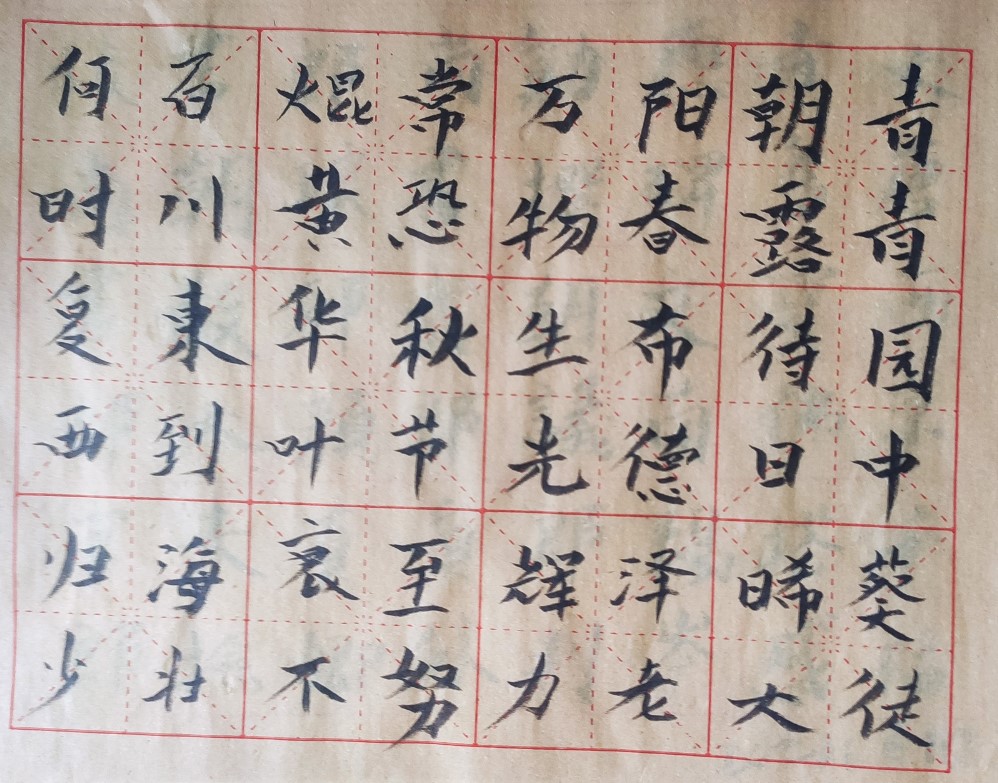 青青园中葵
朝露待日晞
阳春布德泽
万物生光辉
常恐秋节至
焜黄华叶衰
百川東到海
何时复西归
少壮不努力老大徒